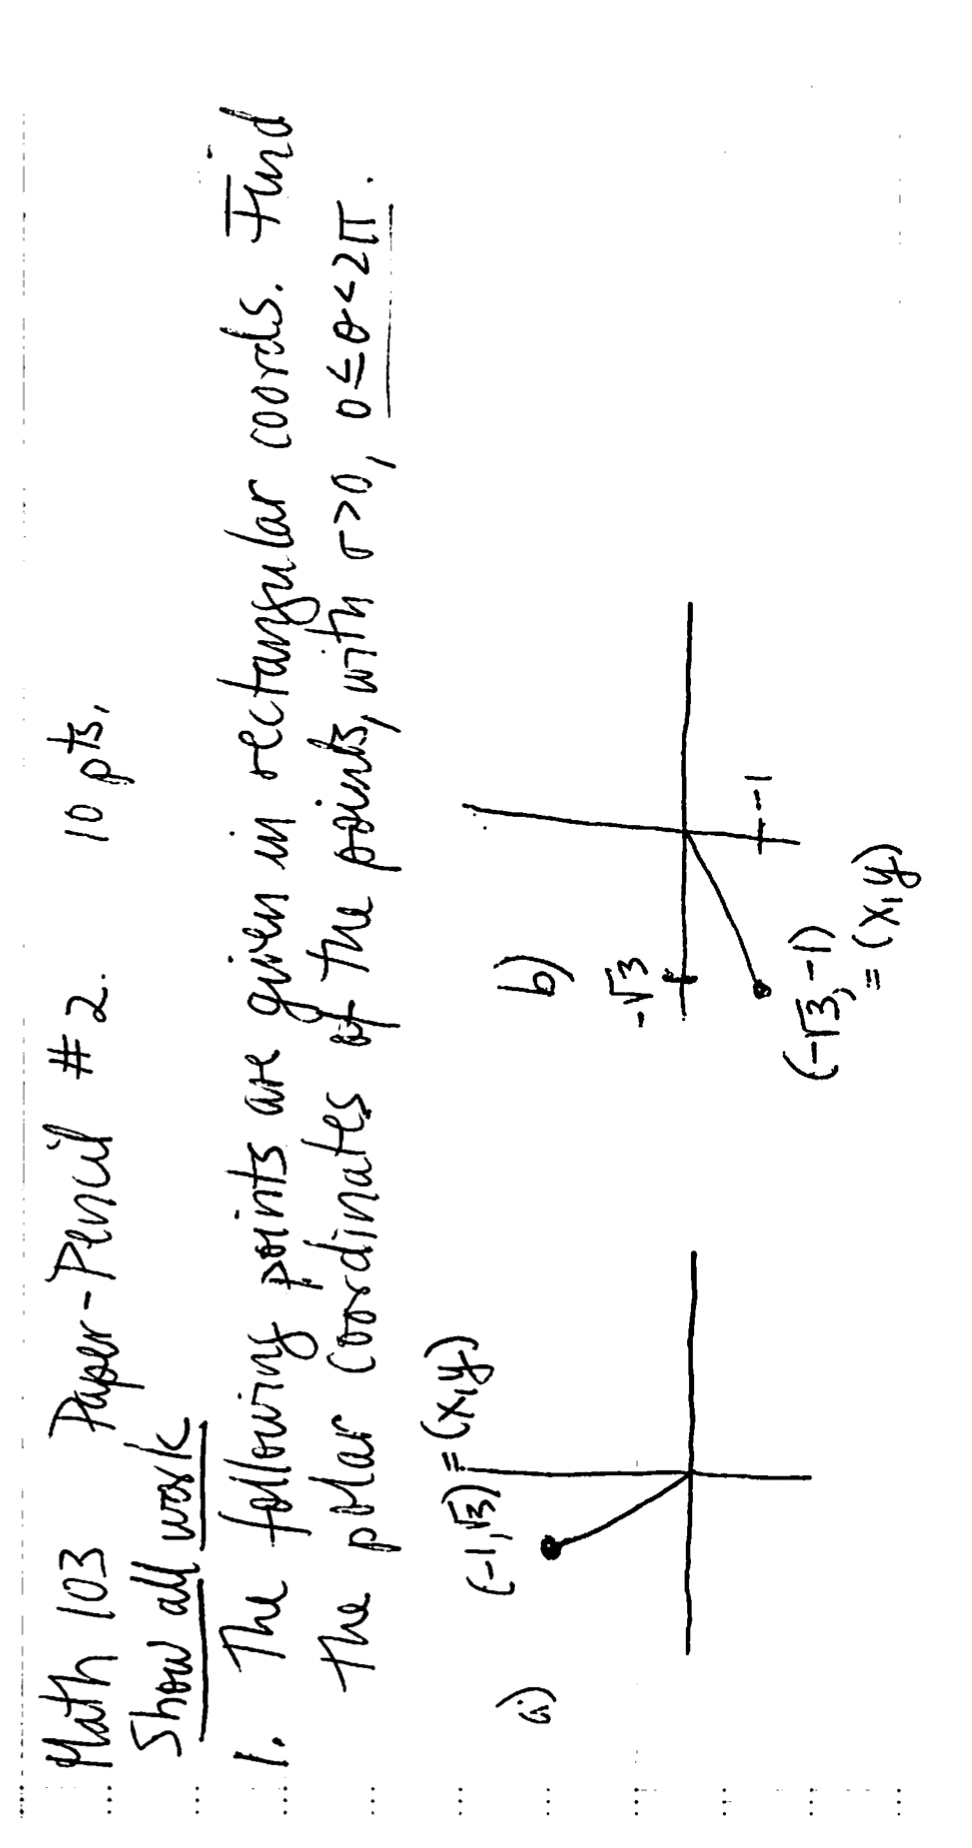 Math 103 Paper-Pencil #2. 10 pts.
Show all work
1. The following points are given in rectangular coords. Find
the polar coordinates of the points, with r>0, 0≤θ<2π.
a)
(-1,√3) = (x,y)
b)
-√3
-1
(-√3,-1)
= (x,y)